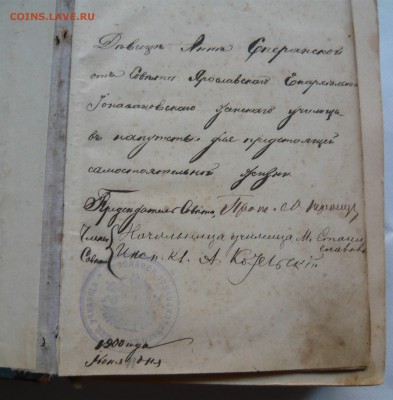 COINS.LAVE.RU
Дѣвицѣ Аннѣ Сперанской
отъ Совѣта Ярославскаго Епархіальн
Іонаѳановскаго женскаго училища
въ напутствіе для предстоящей
самостоятельной жизни
Предсѣдатель Совѣта, Прот.
Члены Совѣта
Начальница училища М. Стани
славова
Инсп. кл. А. Козельскій
1900 года
Іюня дня